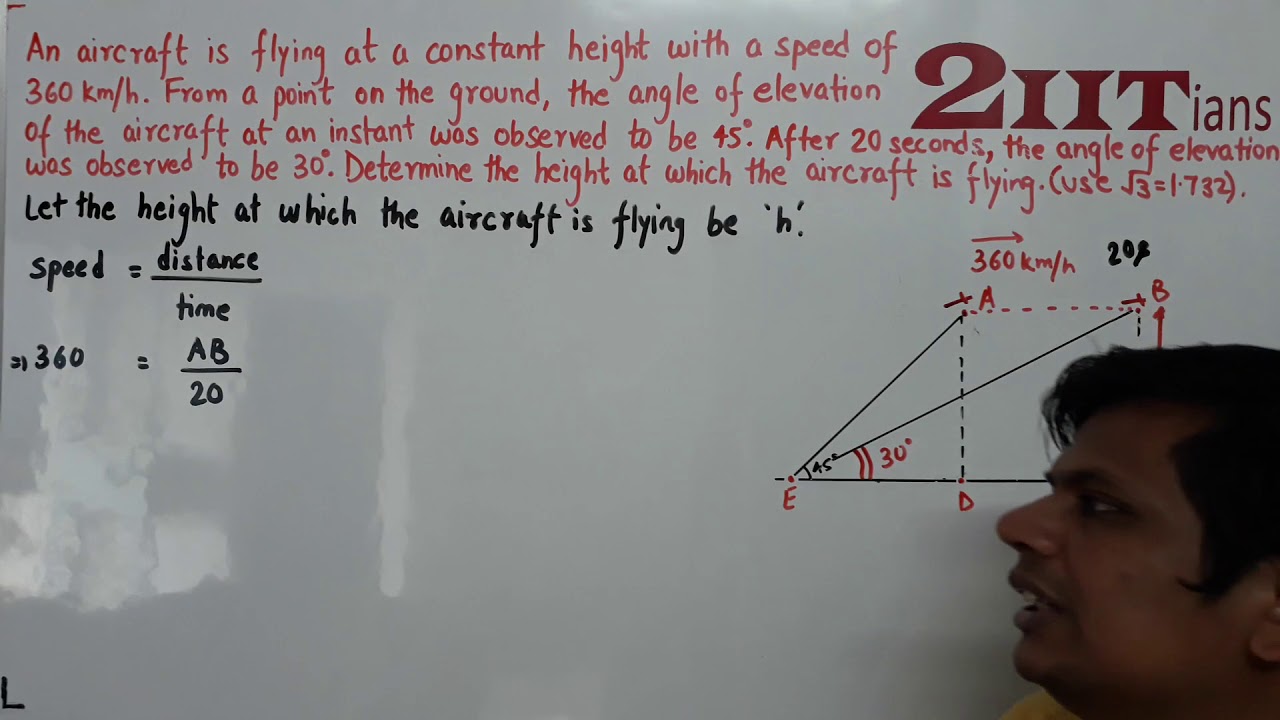 An aircraft is flying at a constant height with a speed of
360 km/h. From a point on the ground, the angle of elevation
of the aircraft at an instant was observed to be 45°. After 20 seconds, the angle of elevation
was observed to be 30°. Determine the height at which the aircraft is flying. (use √3=1.732).
2IITians
Let the height at which the aircraft is flying be 'h'.
speed = distance
time
⇒ 360 = AB
20
360 km/h
20s
A
B
45°
30°
E
D
L